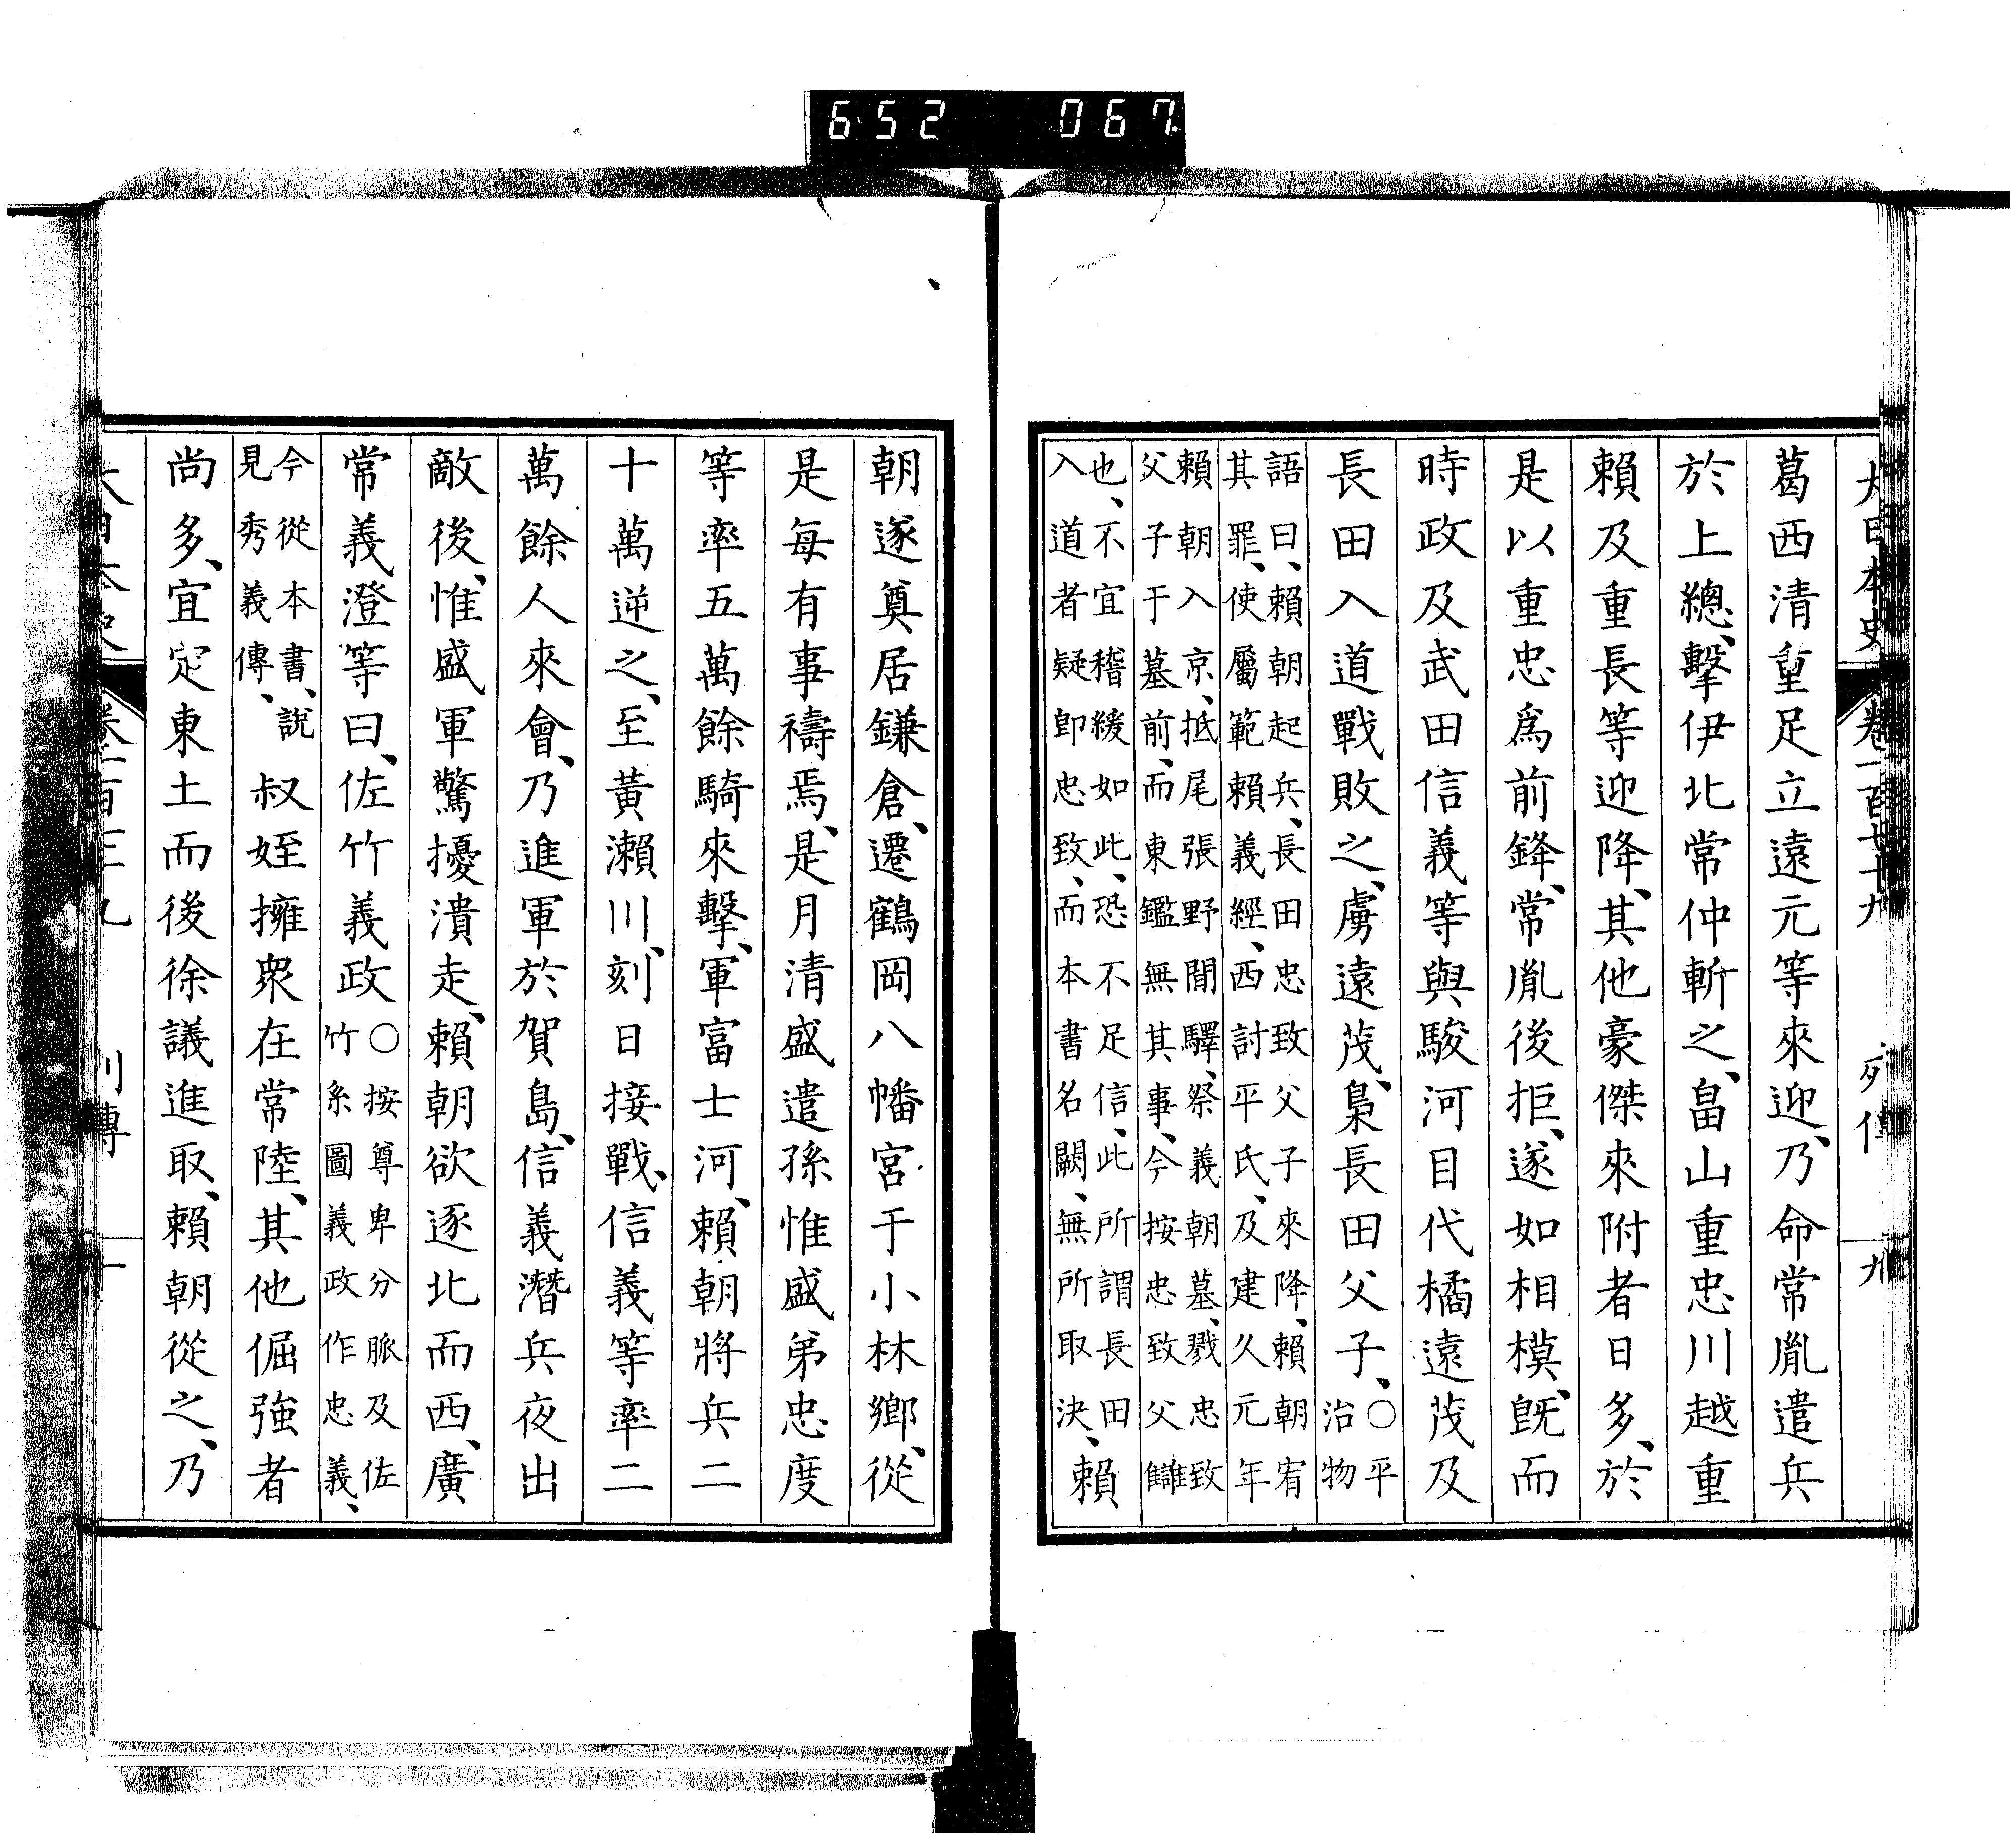 652 067
大日本史 卷一百七十九 列傳 九
葛西清重足立遠元等來迎、乃命常胤遣兵
於上總、擊伊北常仲斬之、畠山重忠川越重
賴及重長等迎降、其他豪傑來附者日多、於
是以重忠爲前鋒、常胤後拒、遂如相模、旣而
時政及武田信義等與駿河目代橘遠茂及
長田入道戰敗之、虜遠茂、梟長田父子、〇平
治物
語曰、賴朝起兵、長田忠致父子來降、賴朝宥
其罪、使屬範賴義經、西討平氏、及建久元年
賴朝入京、抵尾張野間驛、祭義朝墓、戮忠致
父子于墓前、而東鑑無其事、今按忠致父讎
也、不宜稽緩如此、恐不足信、此所謂長田
入道者疑卽忠致、而本書名闕、無所取決、賴
朝遂奠居鎌倉、遷鶴岡八幡宮于小林鄉、從
是每有事禱焉、是月清盛遣孫惟盛弟忠度
等率五萬餘騎來擊、軍富士河、賴朝將兵二
十萬逆之、至黃瀨川、刻日接戰、信義等率二
萬餘人來會、乃進軍於賀島、信義潛兵夜出
敵後、惟盛軍驚擾潰走、賴朝欲逐北而西、廣
常義澄等曰、佐竹義政〇按尊卑分脈及佐
竹系圖義政作忠義、
今從本書、說
見秀義傳、叔姪擁衆在常陸、其他倔強者
尚多、宜定東土而後徐議進取、賴朝從之、乃